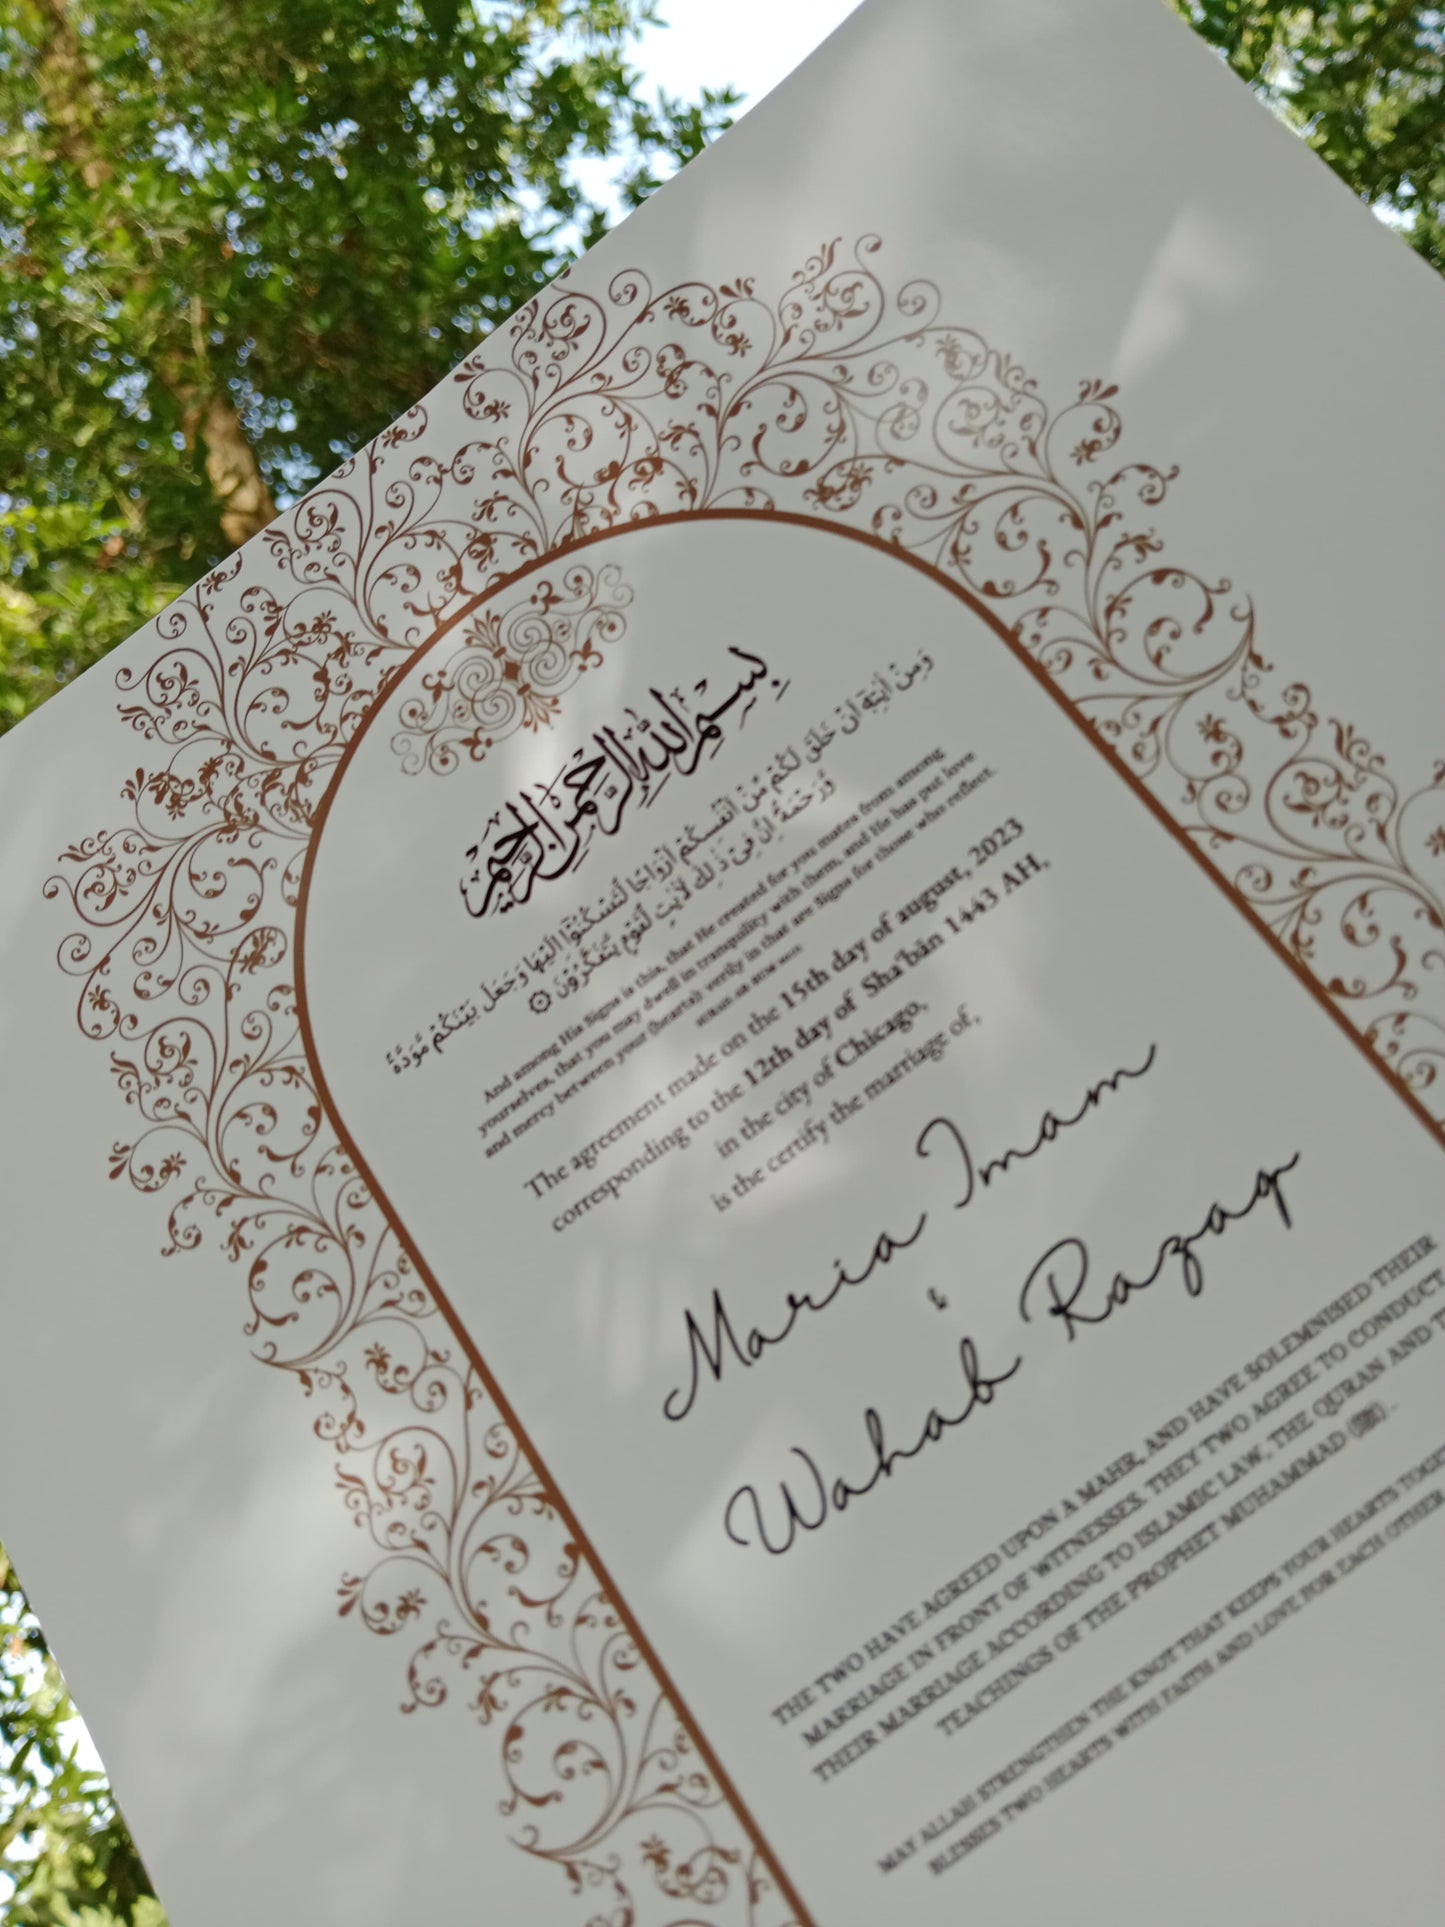 بِسْمِ اللهِ الرَّحْمٰنِ الرَّحِيْمِ
وَمِنْ اٰيٰتِهٖٓ اَنْ خَلَقَ لَكُمْ مِّنْ اَنْفُسِكُمْ اَزْوَاجًا لِّتَسْكُنُوْٓا اِلَيْهَا وَجَعَلَ بَيْنَكُمْ مَّوَدَّةً
وَّرَحْمَةً ۭ اِنَّ فِيْ ذٰلِكَ لَاٰيٰتٍ لِّقَوْمٍ يَّتَفَكَّرُوْنَ ۞
And among His Signs is this, that He created for you mates from among
yourselves, that you may dwell in tranquility with them, and He has put love
and mercy between your (hearts): verily in that are Signs for those who reflect.
The agreement made on the 15th day of august, 2023
corresponding to the 12th day of Sha'bān 1443 AH,
in the city of Chicago,
is the certify the marriage of,
Maria Imam
&
Wahab Razaq
THE TWO HAVE AGREED UPON A MAHR, AND HAVE SOLEMNISED THEIR
MARRIAGE IN FRONT OF WITNESSES. THEY TWO AGREE TO CONDUCT
THEIR MARRIAGE ACCORDING TO ISLAMIC LAW, THE QURAN AND
TEACHINGS OF THE PROPHET MUHAMMAD (ﷺ).
MAY ALLAH STRENGTHEN THE KNOT THAT KEEPS YOUR HEARTS
BLESSES TWO HEARTS WITH FAITH AND LOVE FOR EACH OTHER